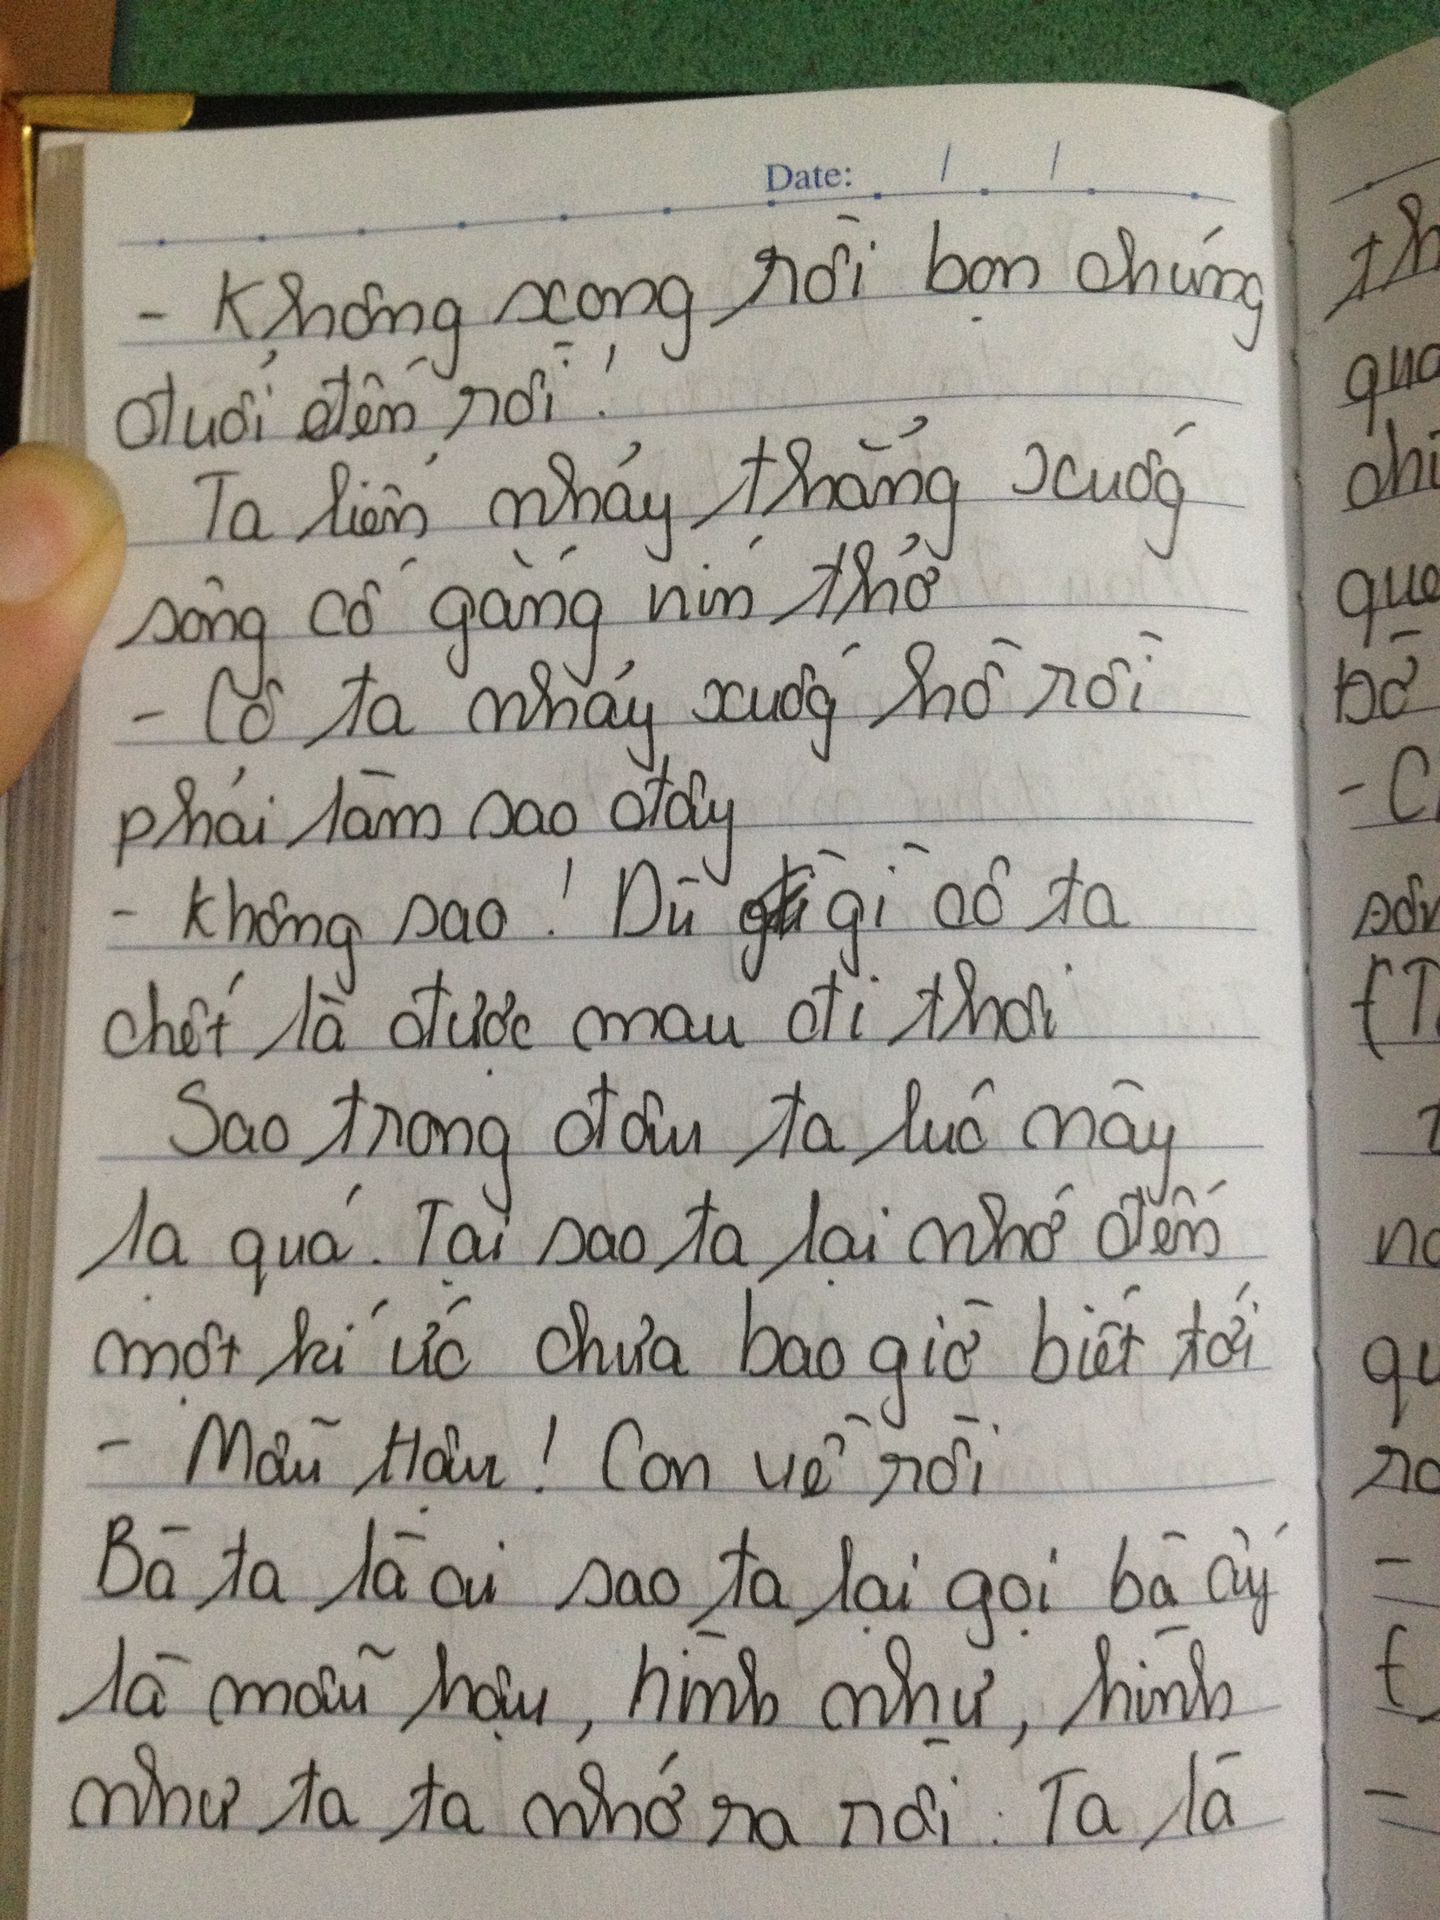 Date: / /
- Không xong rồi bọn chúng
đuổi đến rồi!
Ta liền nhảy thẳng xuốg
sông cố gắng nín thở
- Cô ta nhảy xuốg hồ rồi
phải làm sao đây
- Không sao! Dù gì cô ta
chết là được mau đi thôi
Sao trong đầu ta lúc này
lạ quá. Tại sao ta lại nhớ đến
một kí ức chưa bao giờ biết tới
- Mẫu Hậu! Con về rồi
Bà ta là ai sao ta lại gọi bà ấy
là mẫu hậu, hình như, hình
như ta ta nhớ ra rồi. Ta là